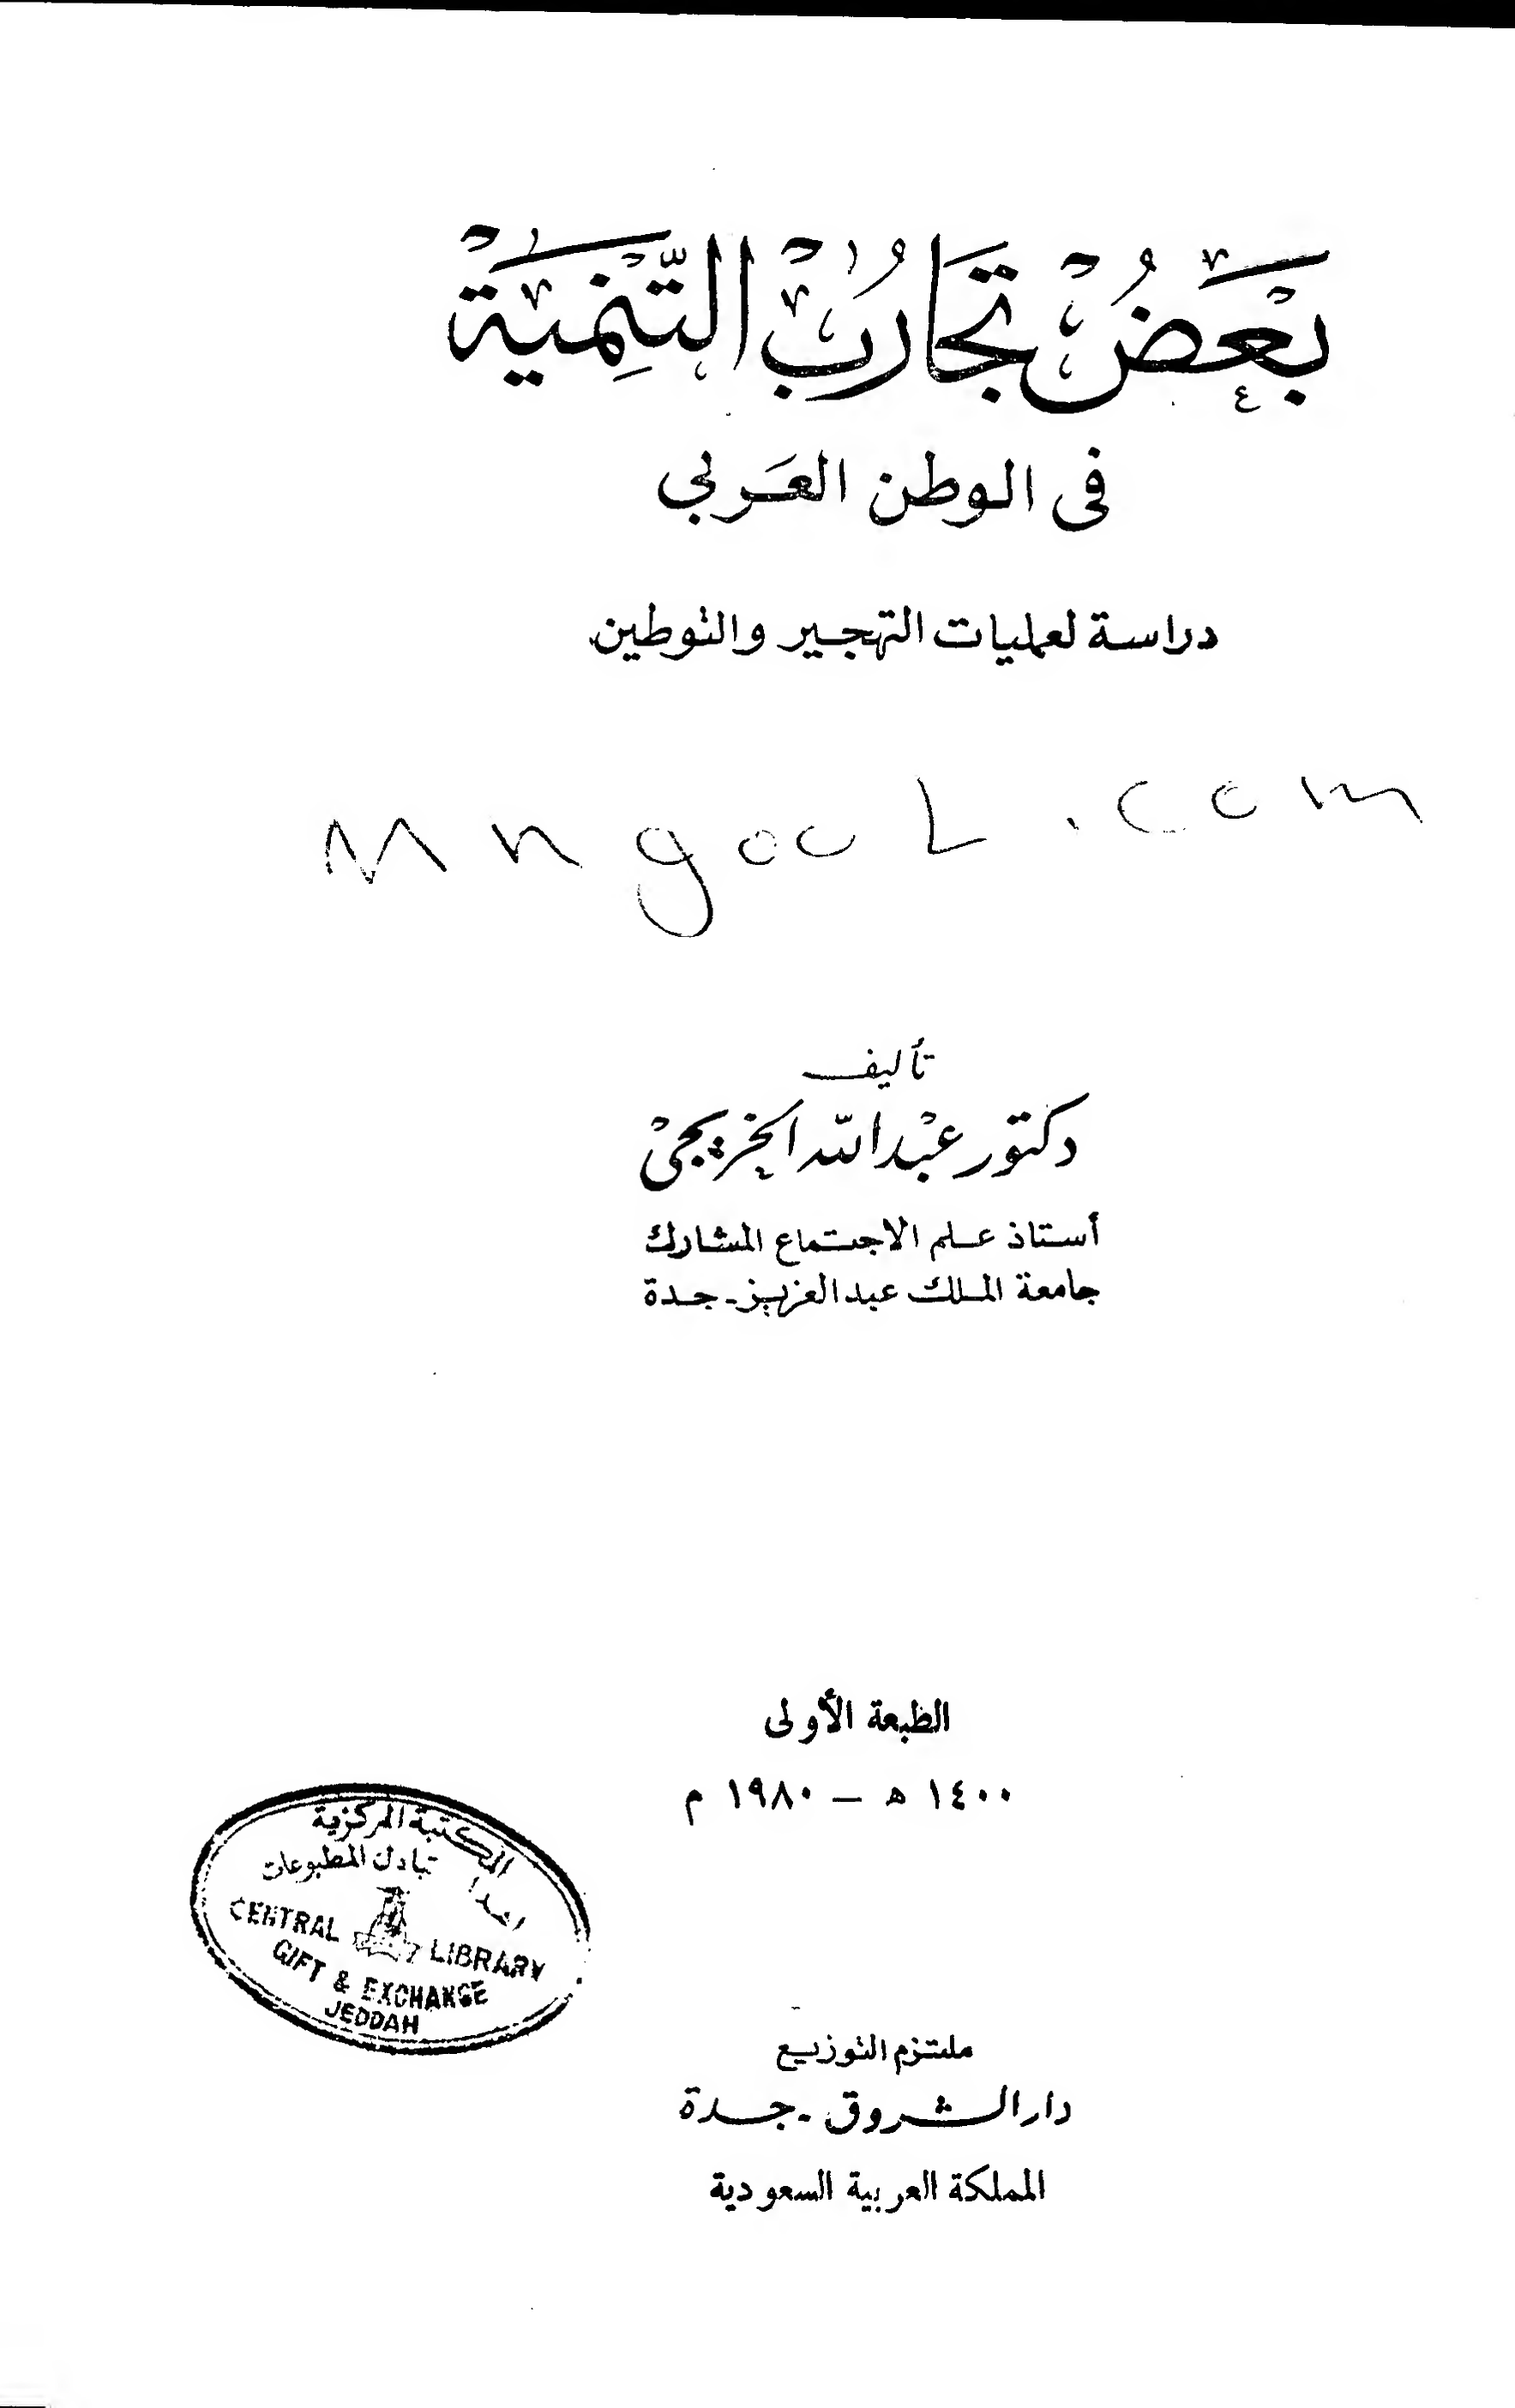 بَعْضُ تجَارُبِ التَّنِمْيَة
فى الوطن العَربي
دراسة لعمليات التهجير والتوطين
Mngool.com
تأليف
دكتور عبْد الله الخريجى
أستاذ علم الاجتماع المشارك
جامعة الملك عبد العزيز - جدة
الطبعة الأولى
١٤٠٠ ه – ١٩٨٠ م
المكتبة المركزية
تبادل المطبوعات
CENTRAL LIBRARY
GIFT & EXCHANGE
JEDDAH
ملتزم التوزيع
دار الشروق - جدة
المملكة العربية السعودية